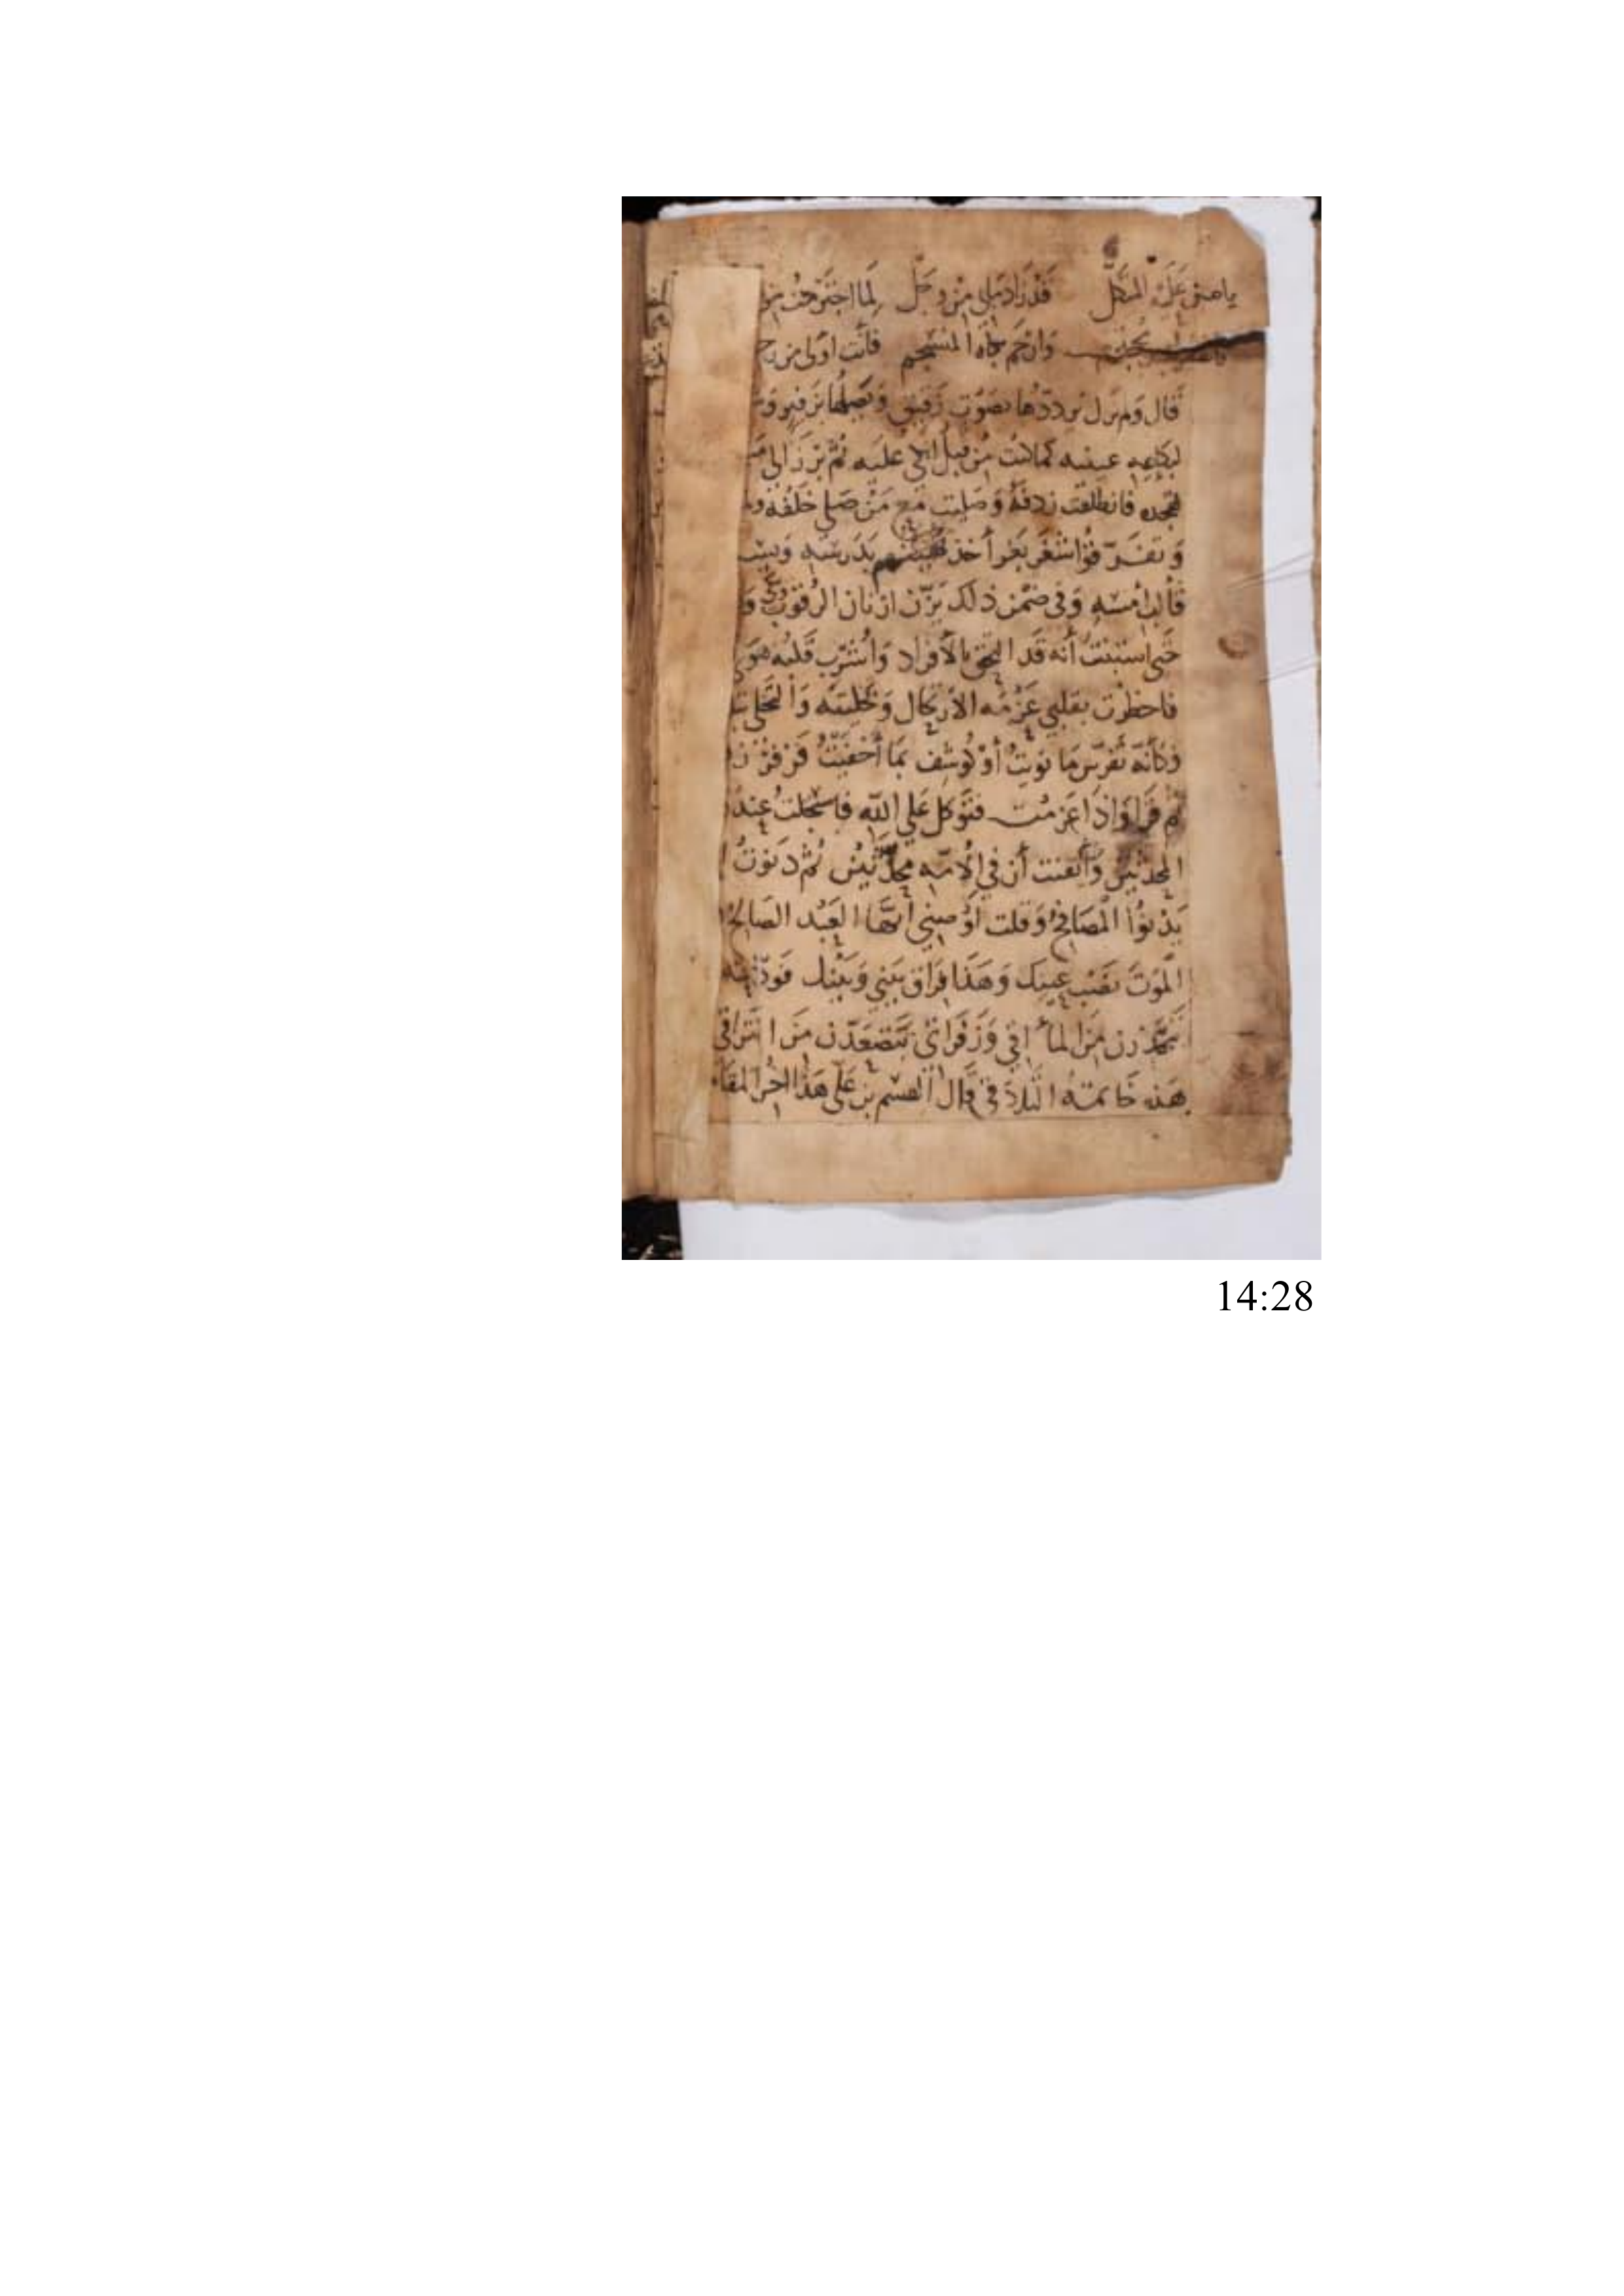 يا من عليه المتكل قد زاد ما بي من وجل لما اجترحت من
وارحم بكاه المنسجم فانت اولى من رحم
قال ولم يزل يرددها بصوت رقيق ويصلها بزفير و
لبكاء عينيه كما كنت من قبل ابكي عليه ثم برز الى
فانطلقت ردفه وصليت مع من صلى خلفه و
وتفرقوا شغر بغر أخذ يهينم بدرسه
قالب امسه وفي ضمن ذلك يرن ارنان الرقوب
حتى استبنت أنه قد التحق بالأفراد واشرب قلبه هوى
فاخطرت بقلبي عزمه الارتحال وتخليته والتخلي
فكأنه تفرس ما نويت أو كوشف بما أخفيت فزفر
ثم قرا واذا عزمت فتوكل على الله فاسجلت عند
المحدثين وأيقنت أن في الامه محدثين ثم دنوت
يدنوا المصافح وقلت اوصني أيها العبد الصالح
الموت نصب عينك وهذا فراق بيني وبينك فودعته
يتحدرن من الماقي وزفراتي يتصعدن من التراقي
هذه خاتمه التلاقي قال القسم بن علي هذا اخر المقا
14:28